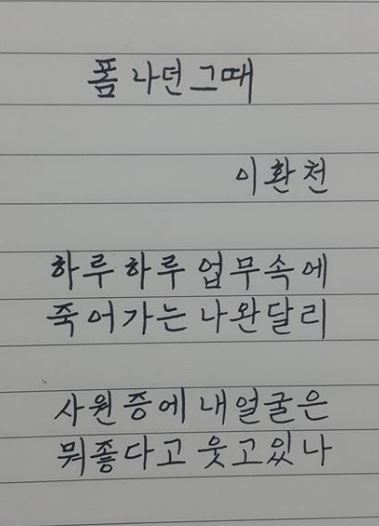 폼 나던 그때
이환천
하루하루 업무속에
죽어가는 나완달리
사원증에 내얼굴은
뭐좋다고 웃고있나